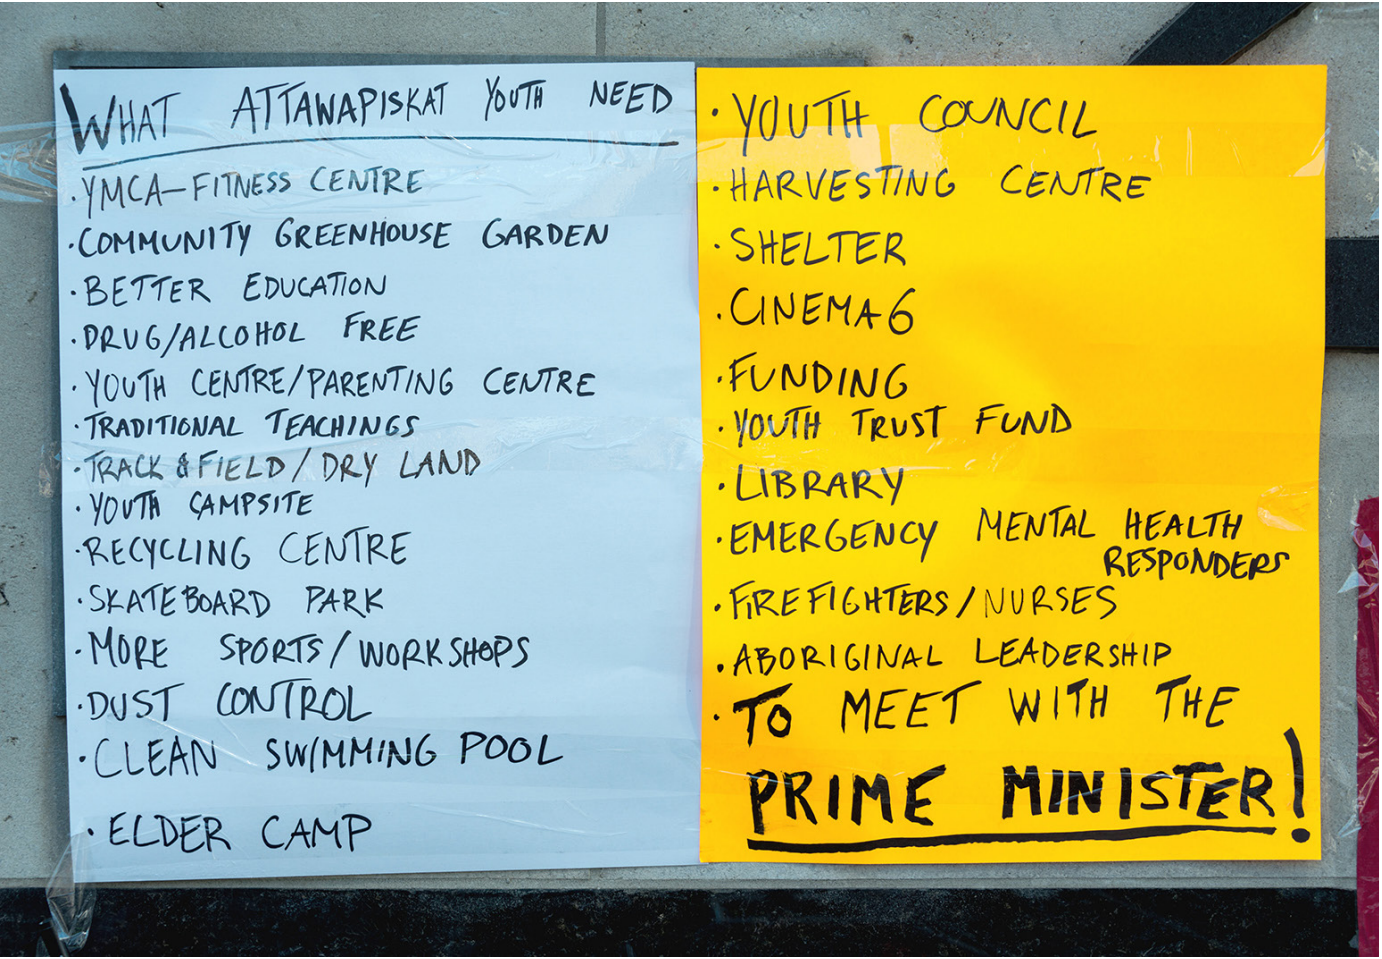 WHAT ATTAWAPISKAT YOUTH NEED
· YMCA-FITNESS CENTRE
· COMMUNITY GREENHOUSE GARDEN
· BETTER EDUCATION
· DRUG/ALCOHOL FREE
· YOUTH CENTRE/PARENTING CENTRE
· TRADITIONAL TEACHINGS
· TRACK & FIELD/DRY LAND
· YOUTH CAMPSITE
· RECYCLING CENTRE
· SKATEBOARD PARK
· MORE SPORTS/WORKSHOPS
· DUST CONTROL
· CLEAN SWIMMING POOL
· ELDER CAMP
· YOUTH COUNCIL
· HARVESTING CENTRE
· SHELTER
· CINEMA 6
· FUNDING
· YOUTH TRUST FUND
· LIBRARY
· EMERGENCY MENTAL HEALTH
RESPONDERS
· FIREFIGHTERS/NURSES
· ABORIGINAL LEADERSHIP
· TO MEET WITH THE
PRIME MINISTER!